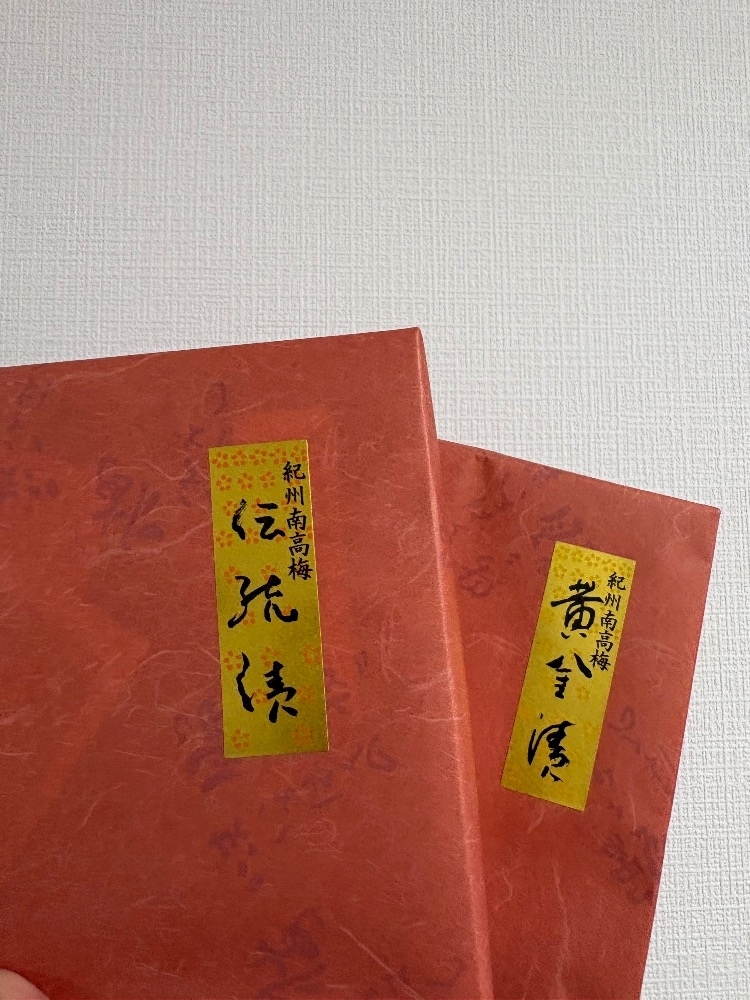 紀州南高梅
伝統漬
紀州南高梅
黄金漬